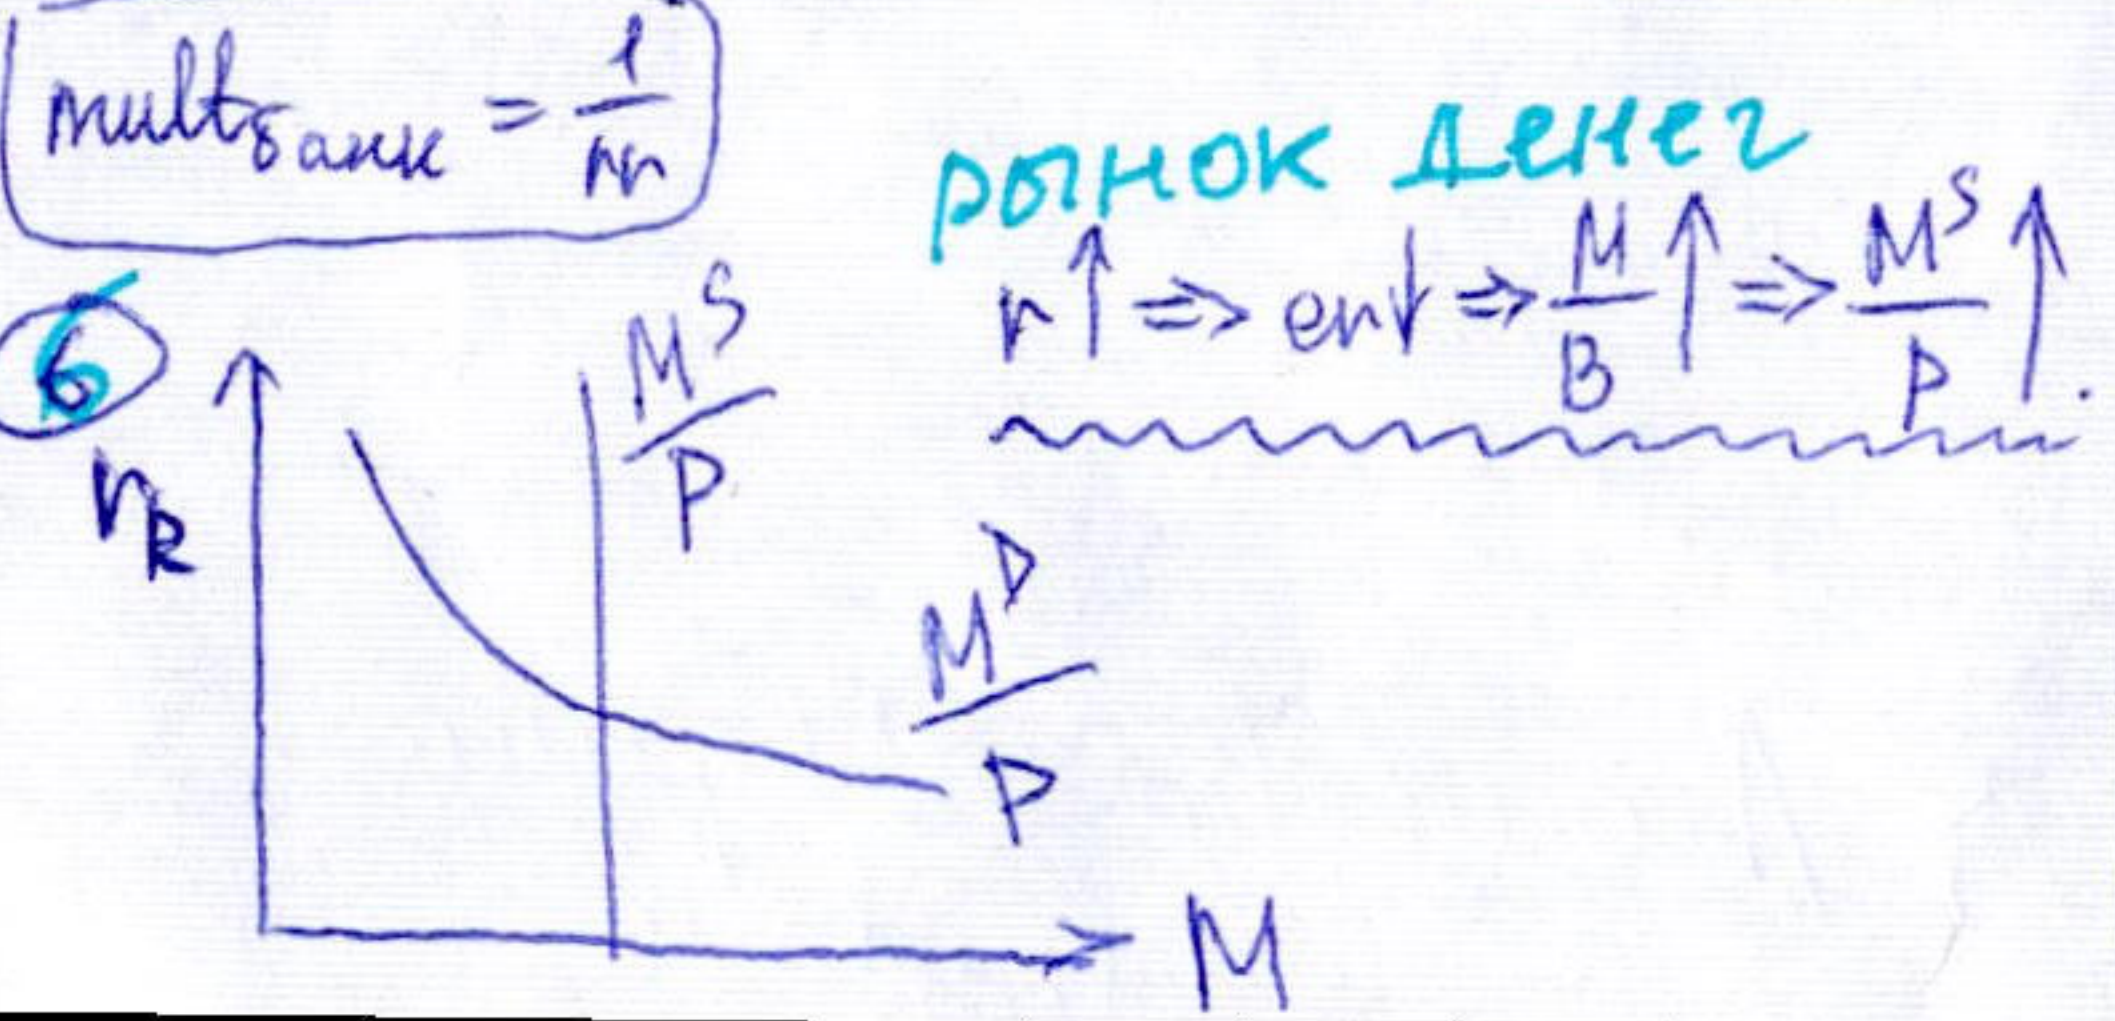 mult банк = 1/rr
рынок денег
r↑ => er↓ => M/B ↑ => M^S/P ↑.
6
r_R
M^S/P
M^D/P
M